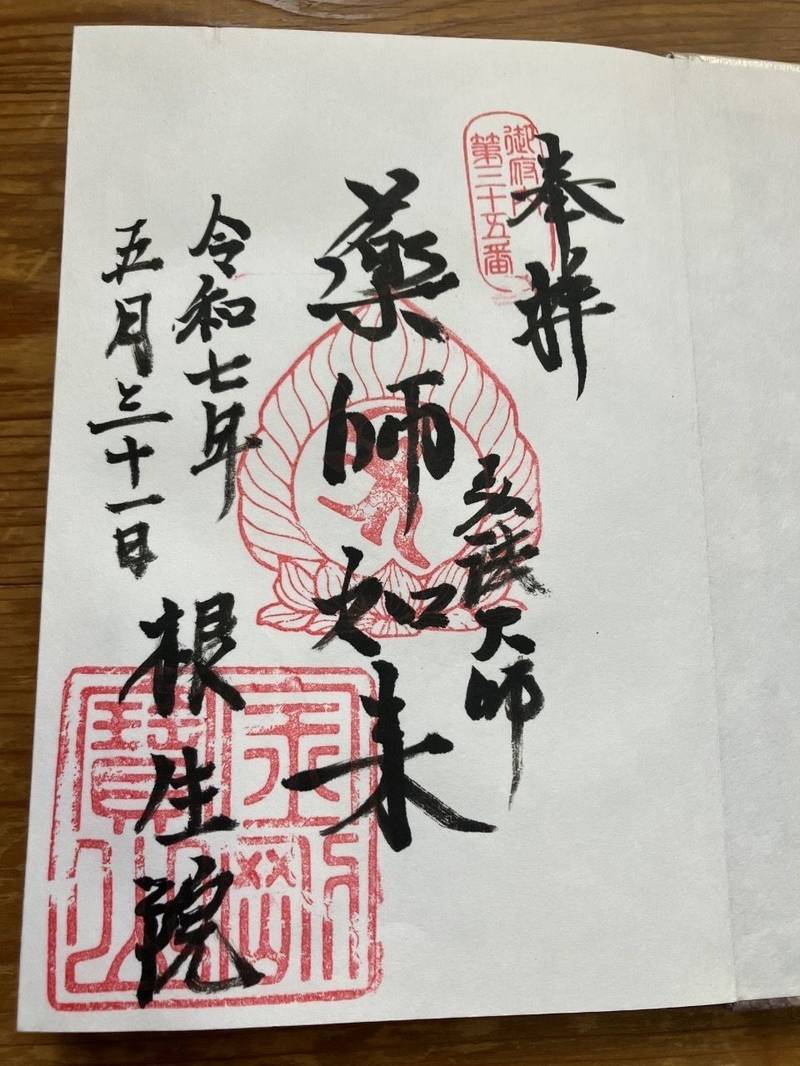 奉拝
御府内
第三十五番
弘法大師
薬師如来
令和七年
五月三十一日
根生院
金剛
寶山